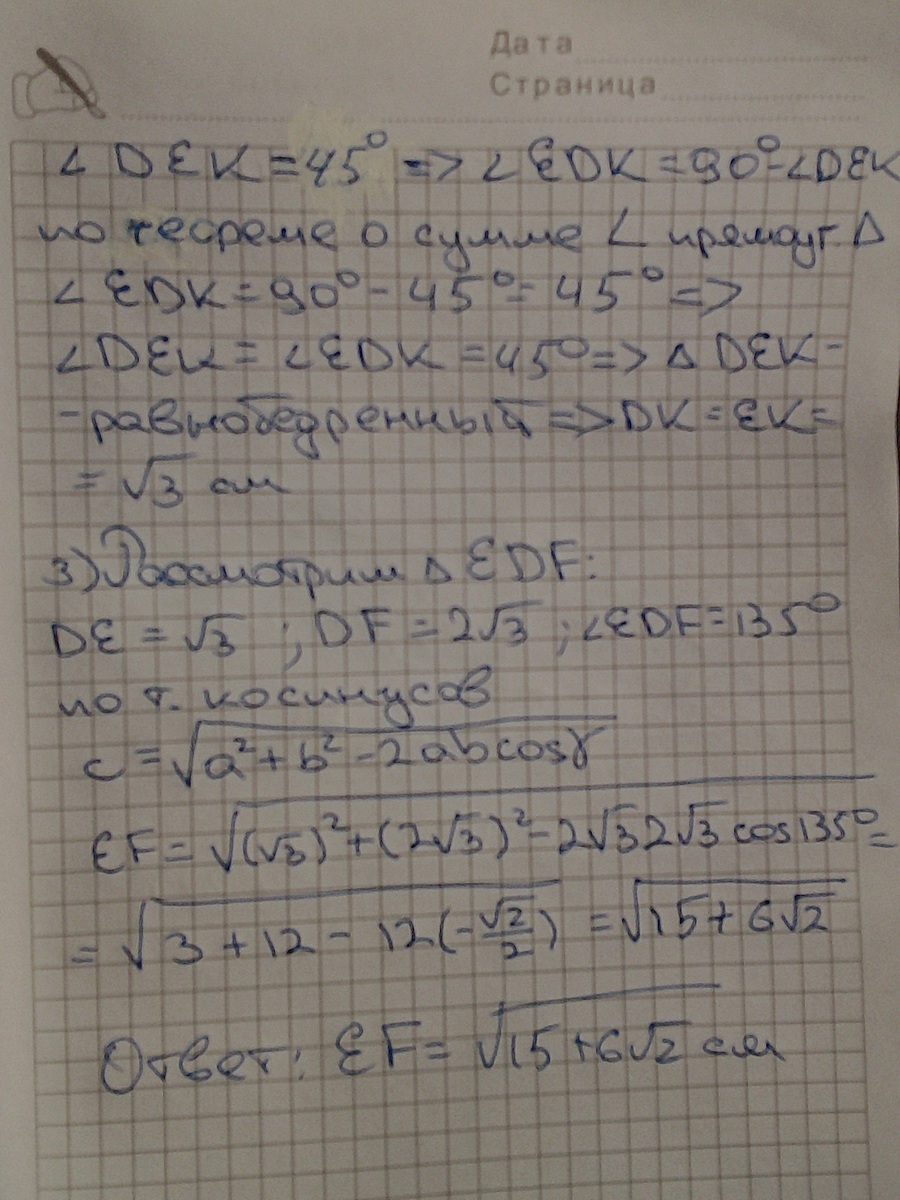 Дата
Страница
∠DEK = 45° => ∠EDK = 90° - ∠DEK
по теореме о сумме ∠ прямоуг. Δ
∠EDK = 90° - 45° = 45° =>
∠DEK = ∠EDK = 45° => Δ DEK -
- равнобедренный => DK = EK =
= √3 см
3) Рассмотрим Δ EDF:
DE = √3 ; DF = 2√3 ; ∠EDF = 135°
по т. косинусов
c = √(a² + b² - 2ab cosγ)
EF = √((√3)² + (2√3)² - 2√3 2√3 cos135°) =
= √(3 + 12 - 12(-√2/2)) = √(15 + 6√2)
Ответ: EF = √(15 + 6√2) см